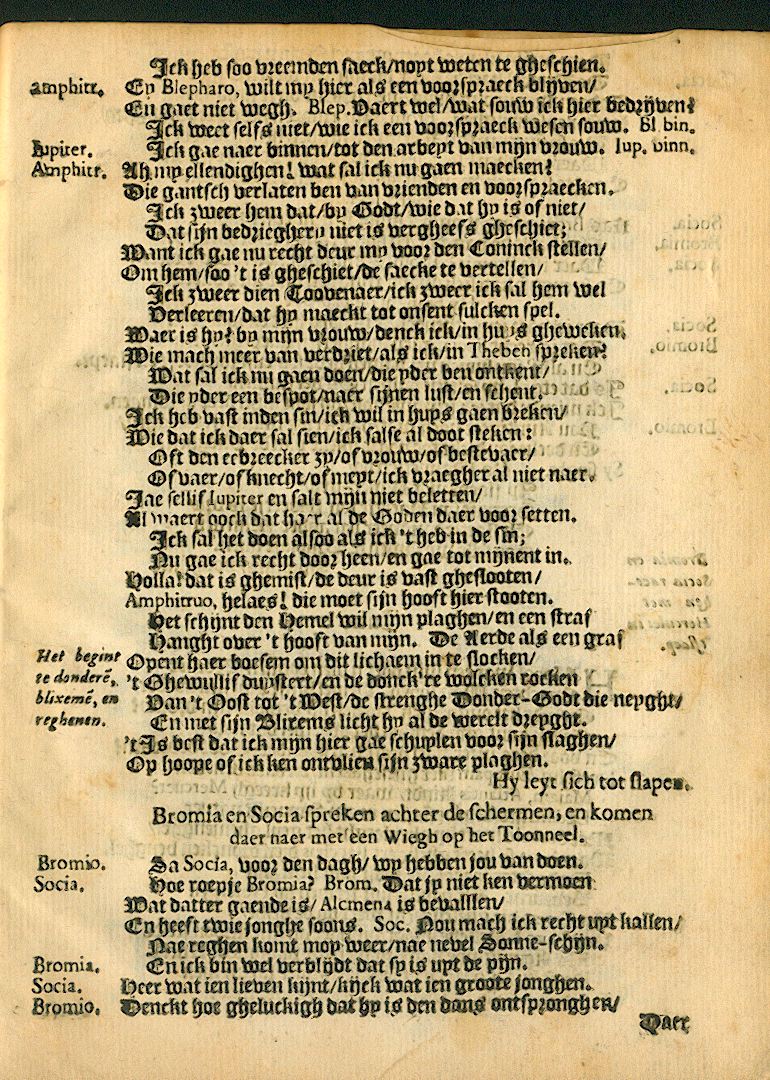 Ick heb soo vreemden saeck/noyt weten te gheschien.
Amphitr. Ey Blepharo, wilt my hier als een voorspraeck blijven/
En gaet niet wegh. Blep. Vaert wel/wat souw ick hier bedrijven?
Ick weet selfs niet/wie ick een voorspraeck wesen souw. Bl. bin.
Iupiter. Ick gae naer binnen/tot den arbeyt van mijn vrouw. Iup. binn.
Amphitr. Ah my ellendighen! wat sal ick nu gaen maecken!
Die gantsch verlaten ben van vrienden en voorspraecken.
Ick zweer hem dat/by Godt/wie dat hy is of niet/
Dat sijn bedrieghery niet is vergheefs gheschiet;
Want ick gae nu recht deur my voor den Coninck stellen/
Om hem/soo 't is gheschiet/de saecke te vertellen/
Ick zweer dien Toovenaer/ick zweer ick sal hem wel
Verleeren/dat hy maeckt tot onsent sulcken spel.
Waer is hy? by mijn vrouw/denck ick/in huys gheweken.
Wie mach meer van verdriet/als ick/in Theben spreken?
Wat sal ick nu gaen doen/die yder ben ontkent/
Die yder een bespot/naer sijnen lust/en schent.
Ick heb vast inden sin/ick wil in huys gaen breken/
Wie dat ick daer sal sien/ick salse al doot steken:
Oft den eebreecker zy/of vrouw/of bestevaer/
Of vaer/of knecht/of meyt/ick vraegher al niet naer.
Jae sellif Iupiter en salt mijn niet beletten/
Al waert oock dat haer al de Goden daer voor setten.
Ick sal het doen alsoo als ick 't heb in de sin;
Nu gae ick recht door heen/en gae tot mijnent in.
Holla! dat is ghemist/de deur is vast ghesslooten/
Amphitruo, helaes! die moet sijn hooft hier stooten.
Het schijnt den Hemel wil mijn plaghen/en een straf
Hanght over 't hooft van mijn. De Aerde als een graf
Het begint te donderē, blixemē, en reghenen.
Opent haer boesem om dit lichaem in te slocken/
't Ghewullif duystert/en de donck're wolcken rocken
Van 't Oost tot 't West/de strenghe Donder-Godt die neyght/
En met sijn Blixems licht hy al de werelt dreyght.
't Is best dat ick mijn hier gae schuylen voor sijn slaghen/
Op hoope of ick ken ontvlien sijn zware plaghen.
Hy leyt sich tot slapen.
Bromia en Socia spreken achter de schermen, en komen
daer naer met een Wiegh op het Toonneel.
Bromio. Sa Socia, voor den dagh/wy hebben jou van doen.
Socia. Hoe roepje Bromia? Brom. Dat jy niet ken vermoen
Wat datter gaende is/Alcmena is bevallen/
En heeft twie jonghe soons. Soc. Nou mach ick recht uyt kallen/
Nae reghen komt moy weer/nae nevel Sonne-schijn.
Bromia. En ick bin wel verblijdt dat sy is uyt de pijn.
Socia. Heer wat ien lieven kijnt/kijck wat ien groote jonghen.
Bromio. Denckt hoe gheluckigh dat hy is den dans ontspronghen/
Daer